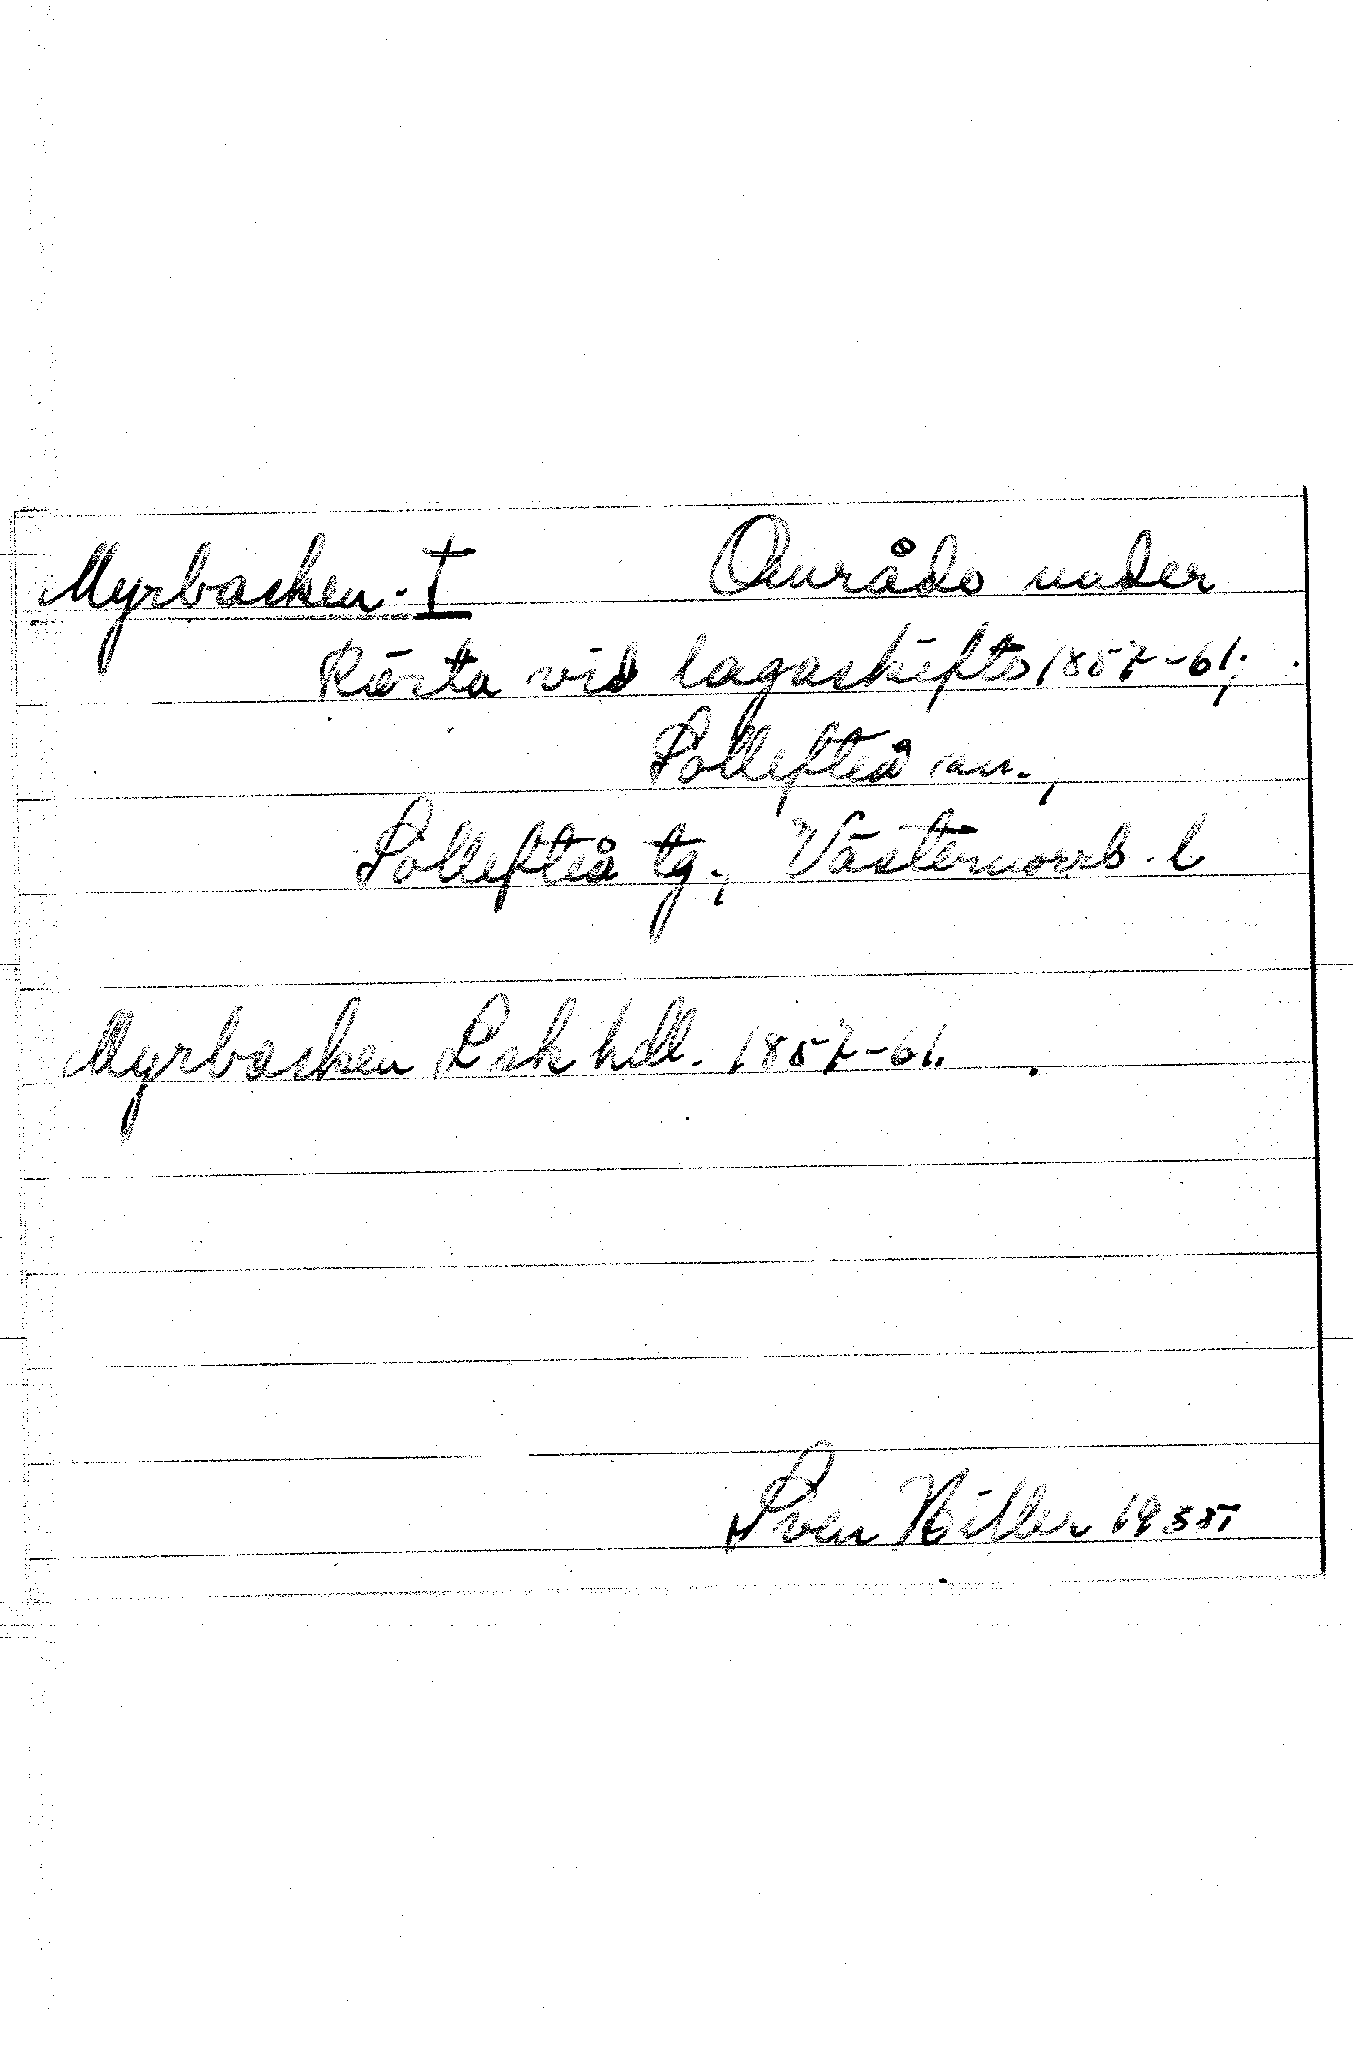 Myrbacken. † Område under
Rösta vid lagaskifte 1857-61;
Sollefteå sn.,
Sollefteå tg., Västernorrl. l
Myrbacken Lsk hdl. 1857-61.
Sven Hiller 1935